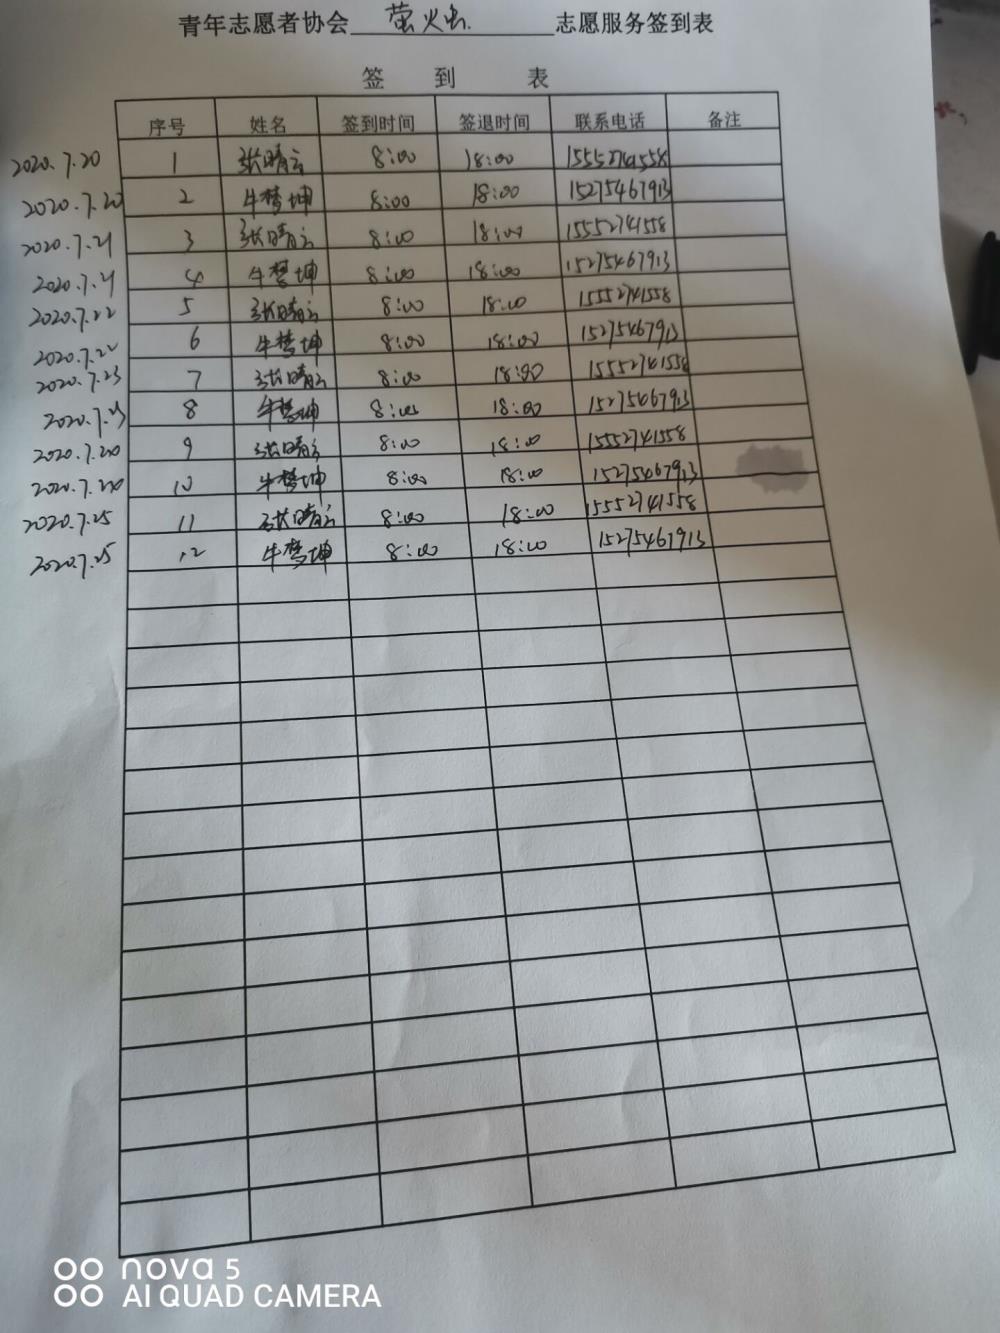 青年志愿者协会 萤火虫 志愿服务签到表
签 到 表
序号 姓名 签到时间 签退时间 联系电话 备注
2020.7.20 1 张晴云 8:00 18:00 15552741558
2020.7.20 2 牛梦坤 8:00 18:00 15275467913
2020.7.21 3 张晴云 8:00 18:00 15552741558
2020.7.21 4 牛梦坤 8:00 18:00 15275467913
2020.7.22 5 张晴云 8:00 18:00 15552741558
2020.7.22 6 牛梦坤 8:00 18:00 15275467913
2020.7.23 7 张晴云 8:00 18:00 15552741558
2020.7.23 8 牛梦坤 8:00 18:00 15275467913
2020.7.20 9 张晴云 8:00 18:00 15552741558
2020.7.20 10 牛梦坤 8:00 18:00 15275467913
2020.7.25 11 张晴云 8:00 18:00 15552741558
2020.7.25 12 牛梦坤 8:00 18:00 15275467913
nova 5
AI QUAD CAMERA